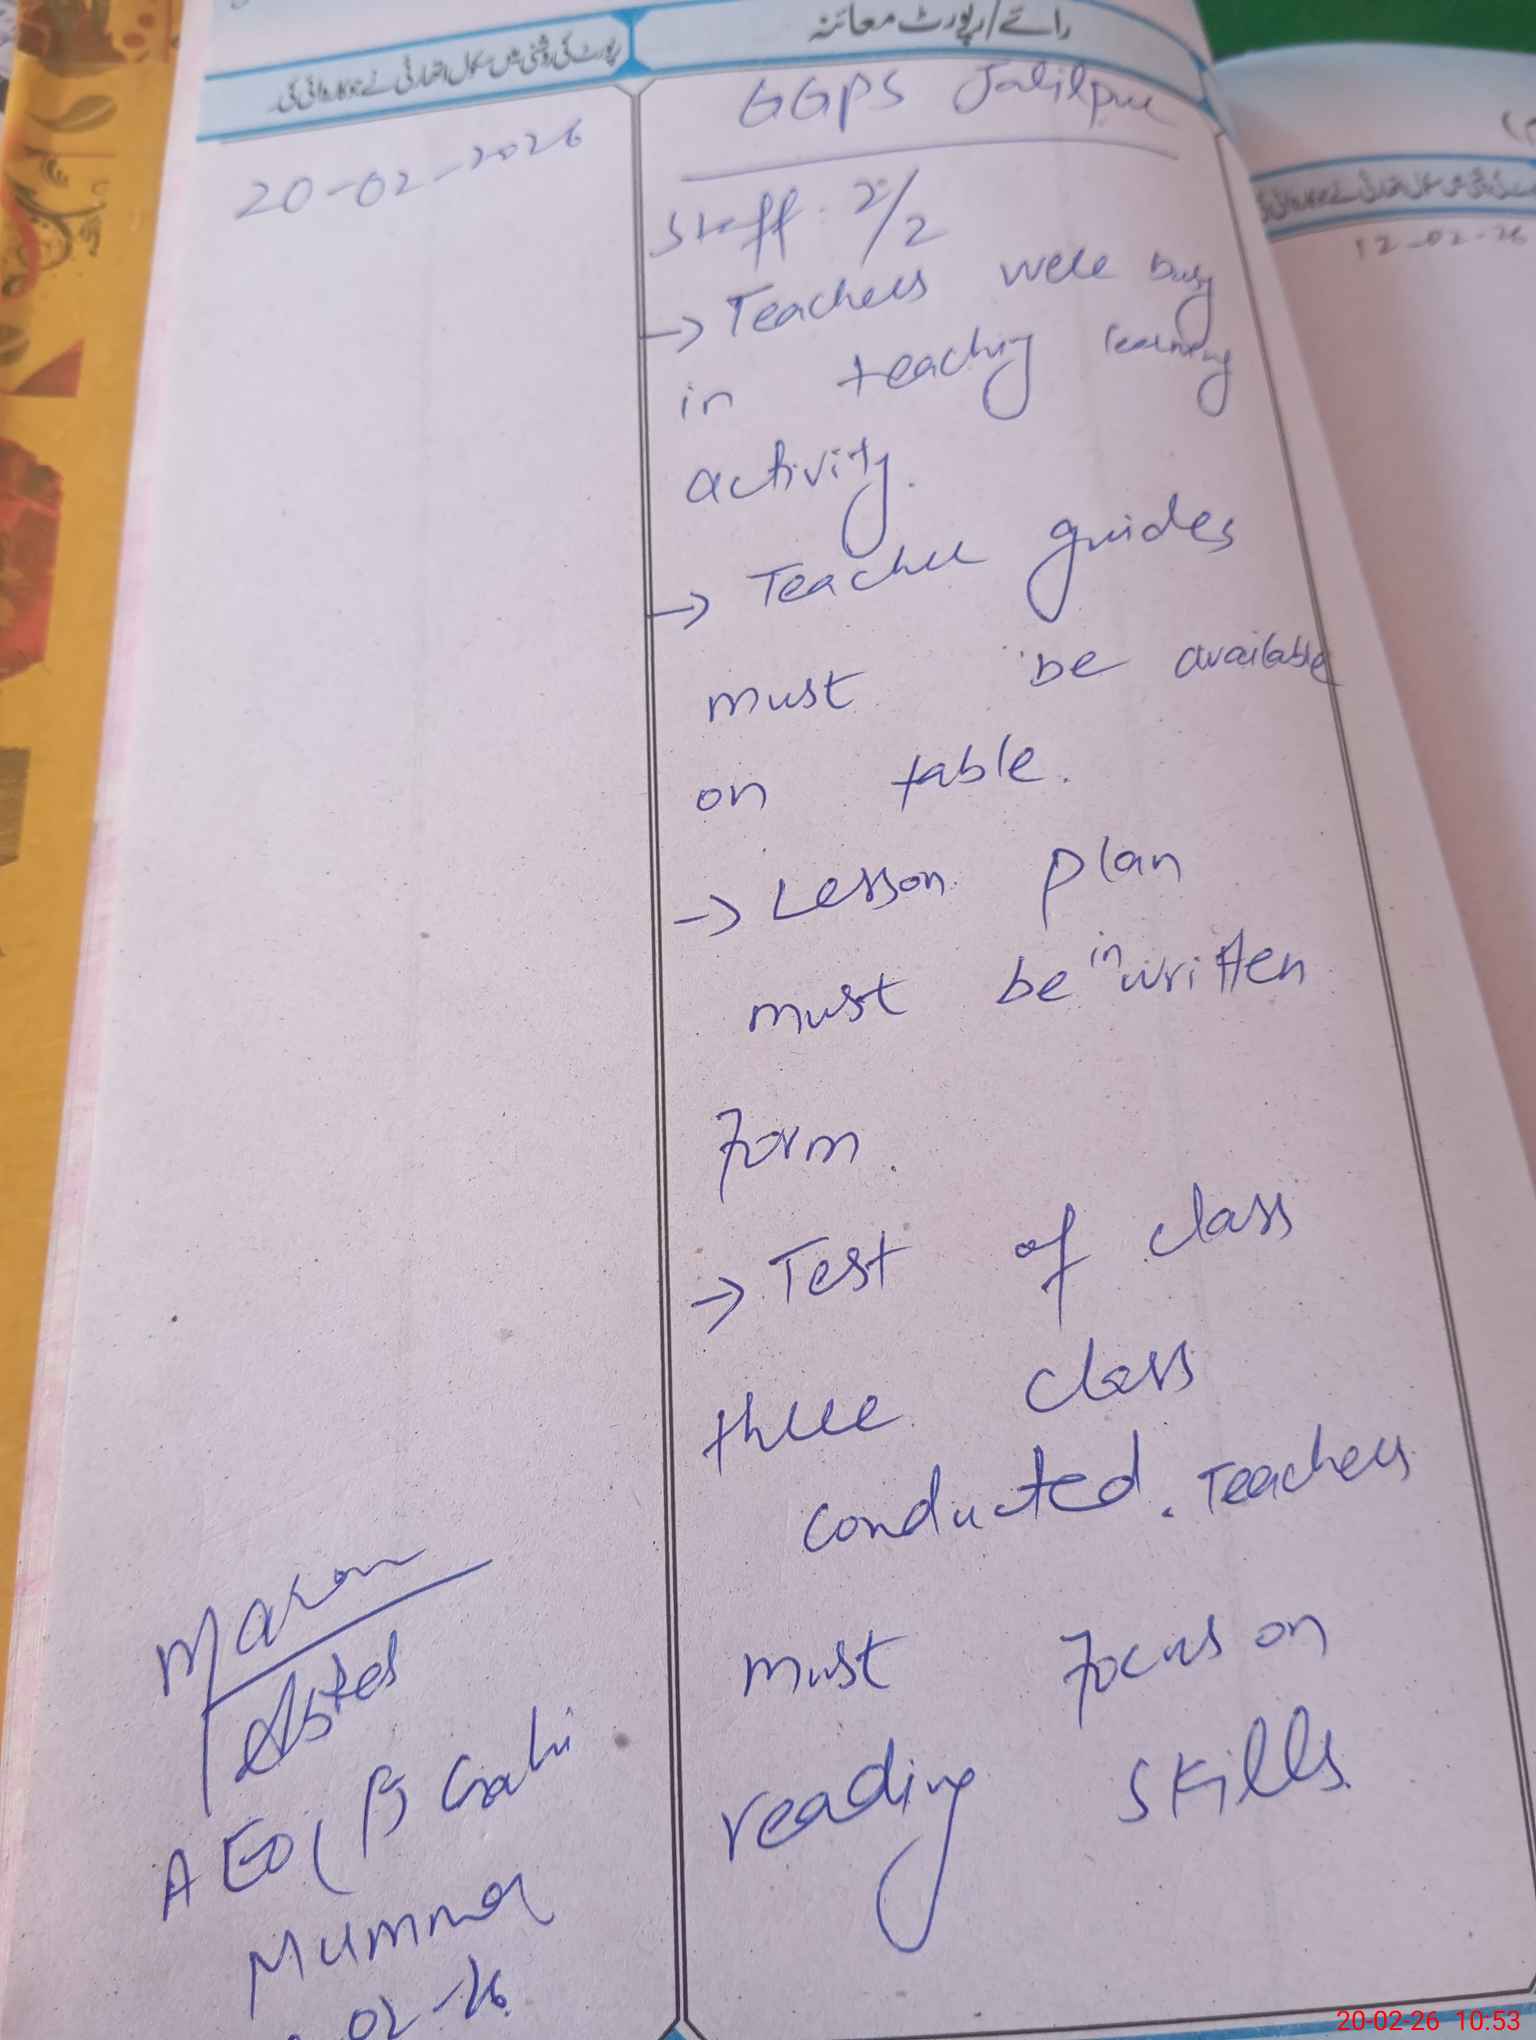 رائے/رپورٹ معائنہ
رپورٹ کی روشنی میں سکول اتھارٹی نے جو کاروائی کی
20-02-2026
GGPS Jalilpur
Staff. 2/2
→ Teachers were busy
in teaching learning
activity.
→ Teacher guides
must be available
on table.
→ Lesson plan
must be in written
Form.
→ Test of class
three class
conducted. Teachers
must Focus on
reading skills
AEO (
02-26
12-02-26
20-02-26 10:53